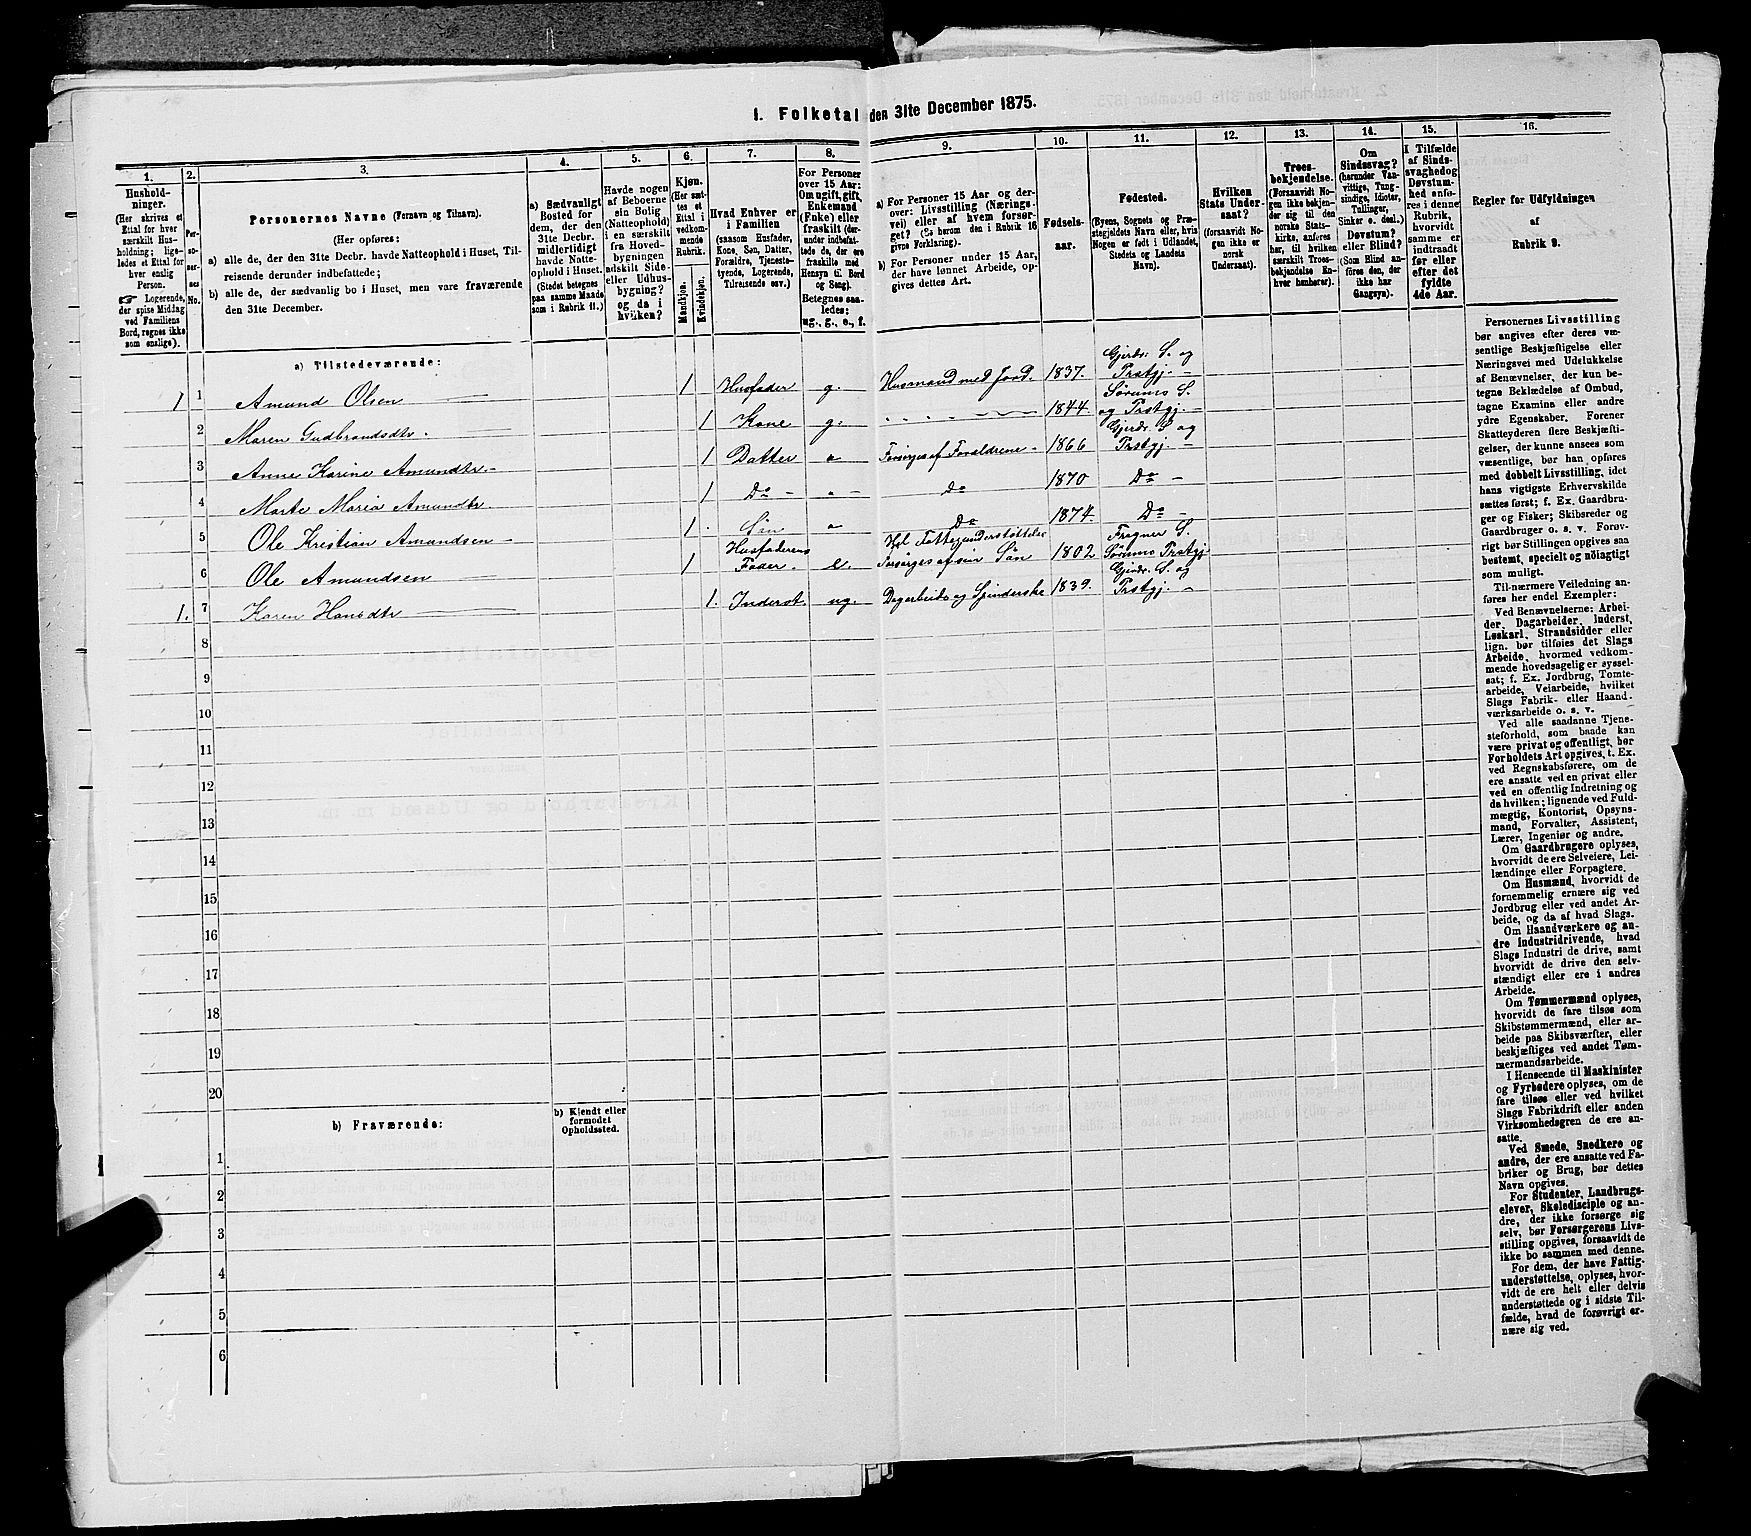 1. Folketal den 31te December 1875.
1.
2.
3.
4.
5.
6.
7.
8.
9.
10.
11.
12.
13.
14.
15.
16.
Hushold-
ninger.
(Her skrives et
Ettal for hver
særskilt Hus-
holdning; lige-
ledes et Ettal for
hver enslig
Person.
☞ Logerende,
der spise Middag
ved Familiens
Bord, regnes ikke
som enslige).
Per-
so-
ner-
nes
No.
Personernes Navne (Fornavn og Tilnavn).
(Her opføres:
a) alle de, der den 31te Decbr. havde Natteophold i Huset, Til-
reisende derunder indbefattede;
b) alle de, der sædvanlig bo i Huset, men vare fraværende
den 31te December.
a) Sædvanligt
Bosted for
dem, der den
31te Decbr.
midlertidigt
havde Natte-
ophold i Huset.
(Stedet betegnes
paa samme Maade
som i Rubrik 11.)
Havde nogen
af Beboerne
sin Bolig
(Natteophold)
i en særskilt
fra Hoved-
bygningen
adskilt Side-
eller Udhus-
bygning?
og da i
hvilken?
Kjøn.
(Her sæt-
tes et
Ettal i
vedkom-
mende
Rubrik.
Mandkjøn.
Kvindekjøn.
Hvad Enhver er
i Familien
(saasom Husfader,
Kone, Søn, Datter,
Forældre, Tjeneste-
tyende, Logerende,
Tilreisende osv.)
For Personer
over 15 Aar:
Om ugift, gift,
Enkemand
(Enke) eller
fraskilt (der-
under indbefat-
tede de, der ere
fraskilte med
Hensyn til Bord
og Seng).
Betegnes saa-
ledes:
ug., g., e., f.
a) For Personer 15 Aar og der-
over: Livsstilling (Nærings-
vei) eller af hvem forsør-
get? (Se herom den i Rubrik 16
givne Forklaring).
b) For Personer under 15 Aar,
der have lønnet Arbeide, op-
gives dettes Art.
Fødsels-
aar.
Fødested.
(Byens, Sognets og Præ-
stegjeldets Navn eller, hvis
Nogen er født i Udlandet,
Stedets og Landets
Navn).
Hvilken
Stats Under-
saat?
(forsaavidt No-
gen ikke er
norsk
Undersaat).
Troes-
bekjendelse.
(Forsaavidt No-
gen ikke bekjen-
der sig til den
norske Stats-
kirke, anføres
her, til hvilken
særskilt Troes-
bekjendelse En-
hver henhører).
Om
Sindssvag?
(herunder Van-
vittige, Tung-
sindige, Idioter,
Tullinger,
Sinker o. desl.)
Døvstum?
eller Blind?
(Som Blind an-
føres den, der
ikke har
Gangsyn).
I Tilfælde
af Sinds-
svaghed og
Døvstum-
hed anfø-
res i denne
Rubrik,
hvorvidt
samme er
indtraadt
før eller
efter det
fyldte
4de Aar.
Regler for Udfyldningen
af
Rubrik 9.
a) Tilstedeværende:
1 1 Amund Olsen 1 Husfader g. Husmand med Jord. 1837. Gjerdr. S. og Prstgj.
2 Maren Gudbrandsdtr. 1 Kone g. 1844. Sørums S. og Prstgj.
3 Anne Karine Amundtr 1 Datter Forsørges af Forældrene 1866 Gjerdr. S og Prstgj.
4 Marte Maria Amundtr. 1 Do Do 1870 Do
5 Ole Kristian Amundsen 1 Søn Do 1874. Do
6 Ole Amundsen 1 Husfaderens Fader. e. Fattigunderstøttelse Forsørges af sin Søn 1802 Frogner S. Sørums Prstgj
1. 7 Karen Hansdtr 1. Inderst ug. Dagarbeide og Spinderske 1839. Gjerdr. S. og Prstgj.
8
9
10
11
12
13
14
15
16
17
18
19
20
b) Fraværende:
b) Kjendt eller
formodet
Opholdssted.
1
2
3
4
5
6
Personernes Livsstilling
bør angives efter deres væ-
sentlige Beskjæftigelse eller
Næringsvei med Udelukkelse
af Benævnelser, der kun be-
tegne Beklædelse af Ombud,
tagne Examina eller andre
ydre Egenskaber. Forener
Skatteyderen flere Beskjæfti-
gelser, der kunne ansees som
væsentlige, bør han opføres
med dobbelt Livsstilling, idet
hans vigtigste Erhvervskilde
sættes først; f. Ex. Gaardbru-
ger og Fisker; Skibsreder og
Gaardbruger o. s. v. Forøv-
rigt bør Stillingen opgives saa
bestemt, specielt og nöiagtigt
som muligt.
Til nærmere Veiledning an-
føres her endel Exempler:
Ved Benævnelserne: Arbei-
der, Dagarbeider, Inderst,
Løskarl, Strandsidder eller
lign. bør tilføies det Slags
Arbeide, hvormed vedkom-
mende hovedsagelig er syssel-
sat; f. Ex. Jordbrug, Tomte-
arbeide, Veiarbeide, hvilket
Slags Fabrik- eller Haand-
værksarbeide o. s. v.
Ved alle saadanne Tjene-
steforhold, som baade kan
være privat og offentligt, bør
Forholdets Art opgives, t. Ex.
ved Regnskabsførere, om de
ere ansatte ved en privat eller
ved en offentlig Indretning og
da hvilken; lignende ved Fuld-
mægtig, Kontorist, Opsyns-
mand, Forvalter, Assistent,
Lærer, Ingeniør og andre.
Om Gaardbrugere oplyses,
hvorvidt de ere Selveiere, Lei-
lændinge eller Forpagtere.
Om Husmænd, hvorvidt de
fornemmelig ernære sig ved
Jordbrug eller ved andet Ar-
beide, og da af hvad Slags.
Om Haandværkere og an-
dre Industridrivende, hvad
Slags Industri de drive, samt
hvorvidt de drive den selv-
stændigt eller ere i andres
Arbeide.
Om Tømmermænd oplyses,
hvorvidt de fare tilsøs som
Skibstømmermænd, eller ar-
beide paa Skibsværfter, eller
beskjæftiges ved andet Tøm-
mermandsarbeide.
I Henseende til Maskinister
og Fyrbødere oplyses, om de
fare tilsøs eller ved hvilket
Slags Fabrikdrift eller anden
Virksomhedsgren de ere an-
satte.
Ved Smede, Snedkere og
andre, der ere ansatte ved Fa-
briker og Brug, bør dettes
Navn opgives.
For Studenter, Landbrugs-
elever, Skoledisciple og an-
dre, der ikke forsørge sig
selv, bør Forsørgerens Livs-
stilling opgives, forsaavidt de
ikke bo sammen med denne.
For dem, der have Fattig-
understøttelse, oplyses, hvor-
vidt de ere helt eller delvis
understøttede og i sidste Til-
fælde, hvad de forøvrigt er-
nære sig ved.